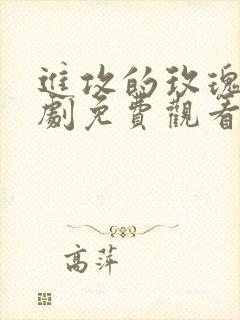 進攻的玫瑰
劇免費觀看
高萍